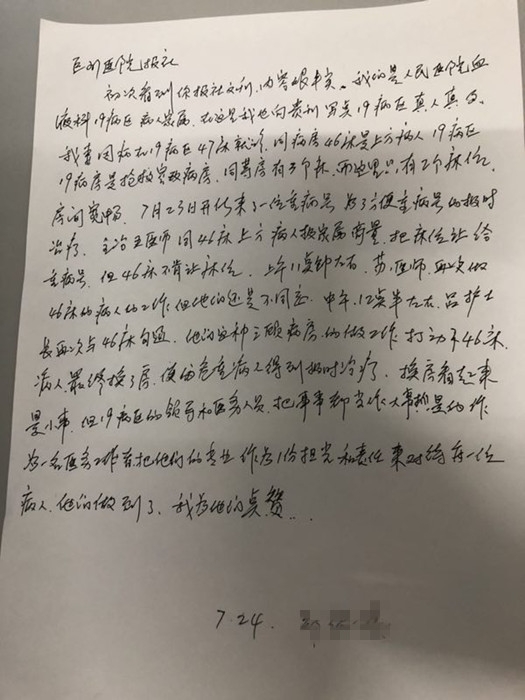 医院报社
初次看到你报社文刊,内容很丰实。我们是人民医院血
液科19病区病人家属,在这里我也向贵刊 19病区真人真
我妻同病在19病区47床就诊,同病房46床是上方病人,19病区
19病房是抢救室改病房,同其房有三个床,而这里只有2个床位,
房间宽畅。7月23日开化来了一位重病号,为了方便重病号的及时
治疗。主治王医师同46床上方病人按家属商量,把床位让给
重病号,但46床不肯让床位。上午11点钟左右,苏医师再次做
46床的病人的工作,但他们还是不同意。中午12点半左右,吕护士
长再次与46床勾通,他们这种三顾病房的做工作打动了46床
病人,最终换了房,使的危重病人得到及时治疗。换房看起来
是小事,但19病区的领导和医务人员,把事事都当作大事抓是他们作
为一名医务工作者,把他们的专业作为1份担当和责任来对待每一位
病人,他们做到了,我为他们点赞...
7.24.